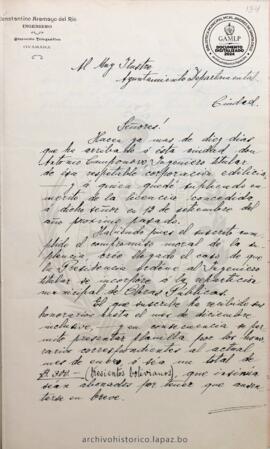 Constantino Aramayo del Río
INGENIERO
Dirección Telegráfica
194
GAMLP
DOCUMENTO
DIGITALIZADO
2024
Al Muy Ilustre
Ayuntamiento Departamental
Ciudad.
Señores:
Hacen ya mas de diez dias
que ha arribado á ésta ciudad don
Antonio Camponovo, Ingeniero titular
de esa respetable corporación edilicia,
á quien quedé supliendo en
merito de la licencia concedida
á dicho señor en de setiembre del
año proximo pasado.
Habiendo pues el suscrito cum-
plido el compromiso moral de la su-
plencia, créo llegado el caso de que
la Presidencia ordene al Ingeniero
titular se incorpore á la repartición
municipal de Obras Públicas.
El que suscribe ha recibido sus
honorarios hasta el mes de diciembre
inclusive, y en consecuencia se per-
mite presentar planilla por los hono-
rarios correspondientes al actual
mes de enero, ó sea un total de
(Trescientos bolivianos) que
sean abonados por tener que ausen-
tarse en breve.
archivohistorico.lapaz.bo